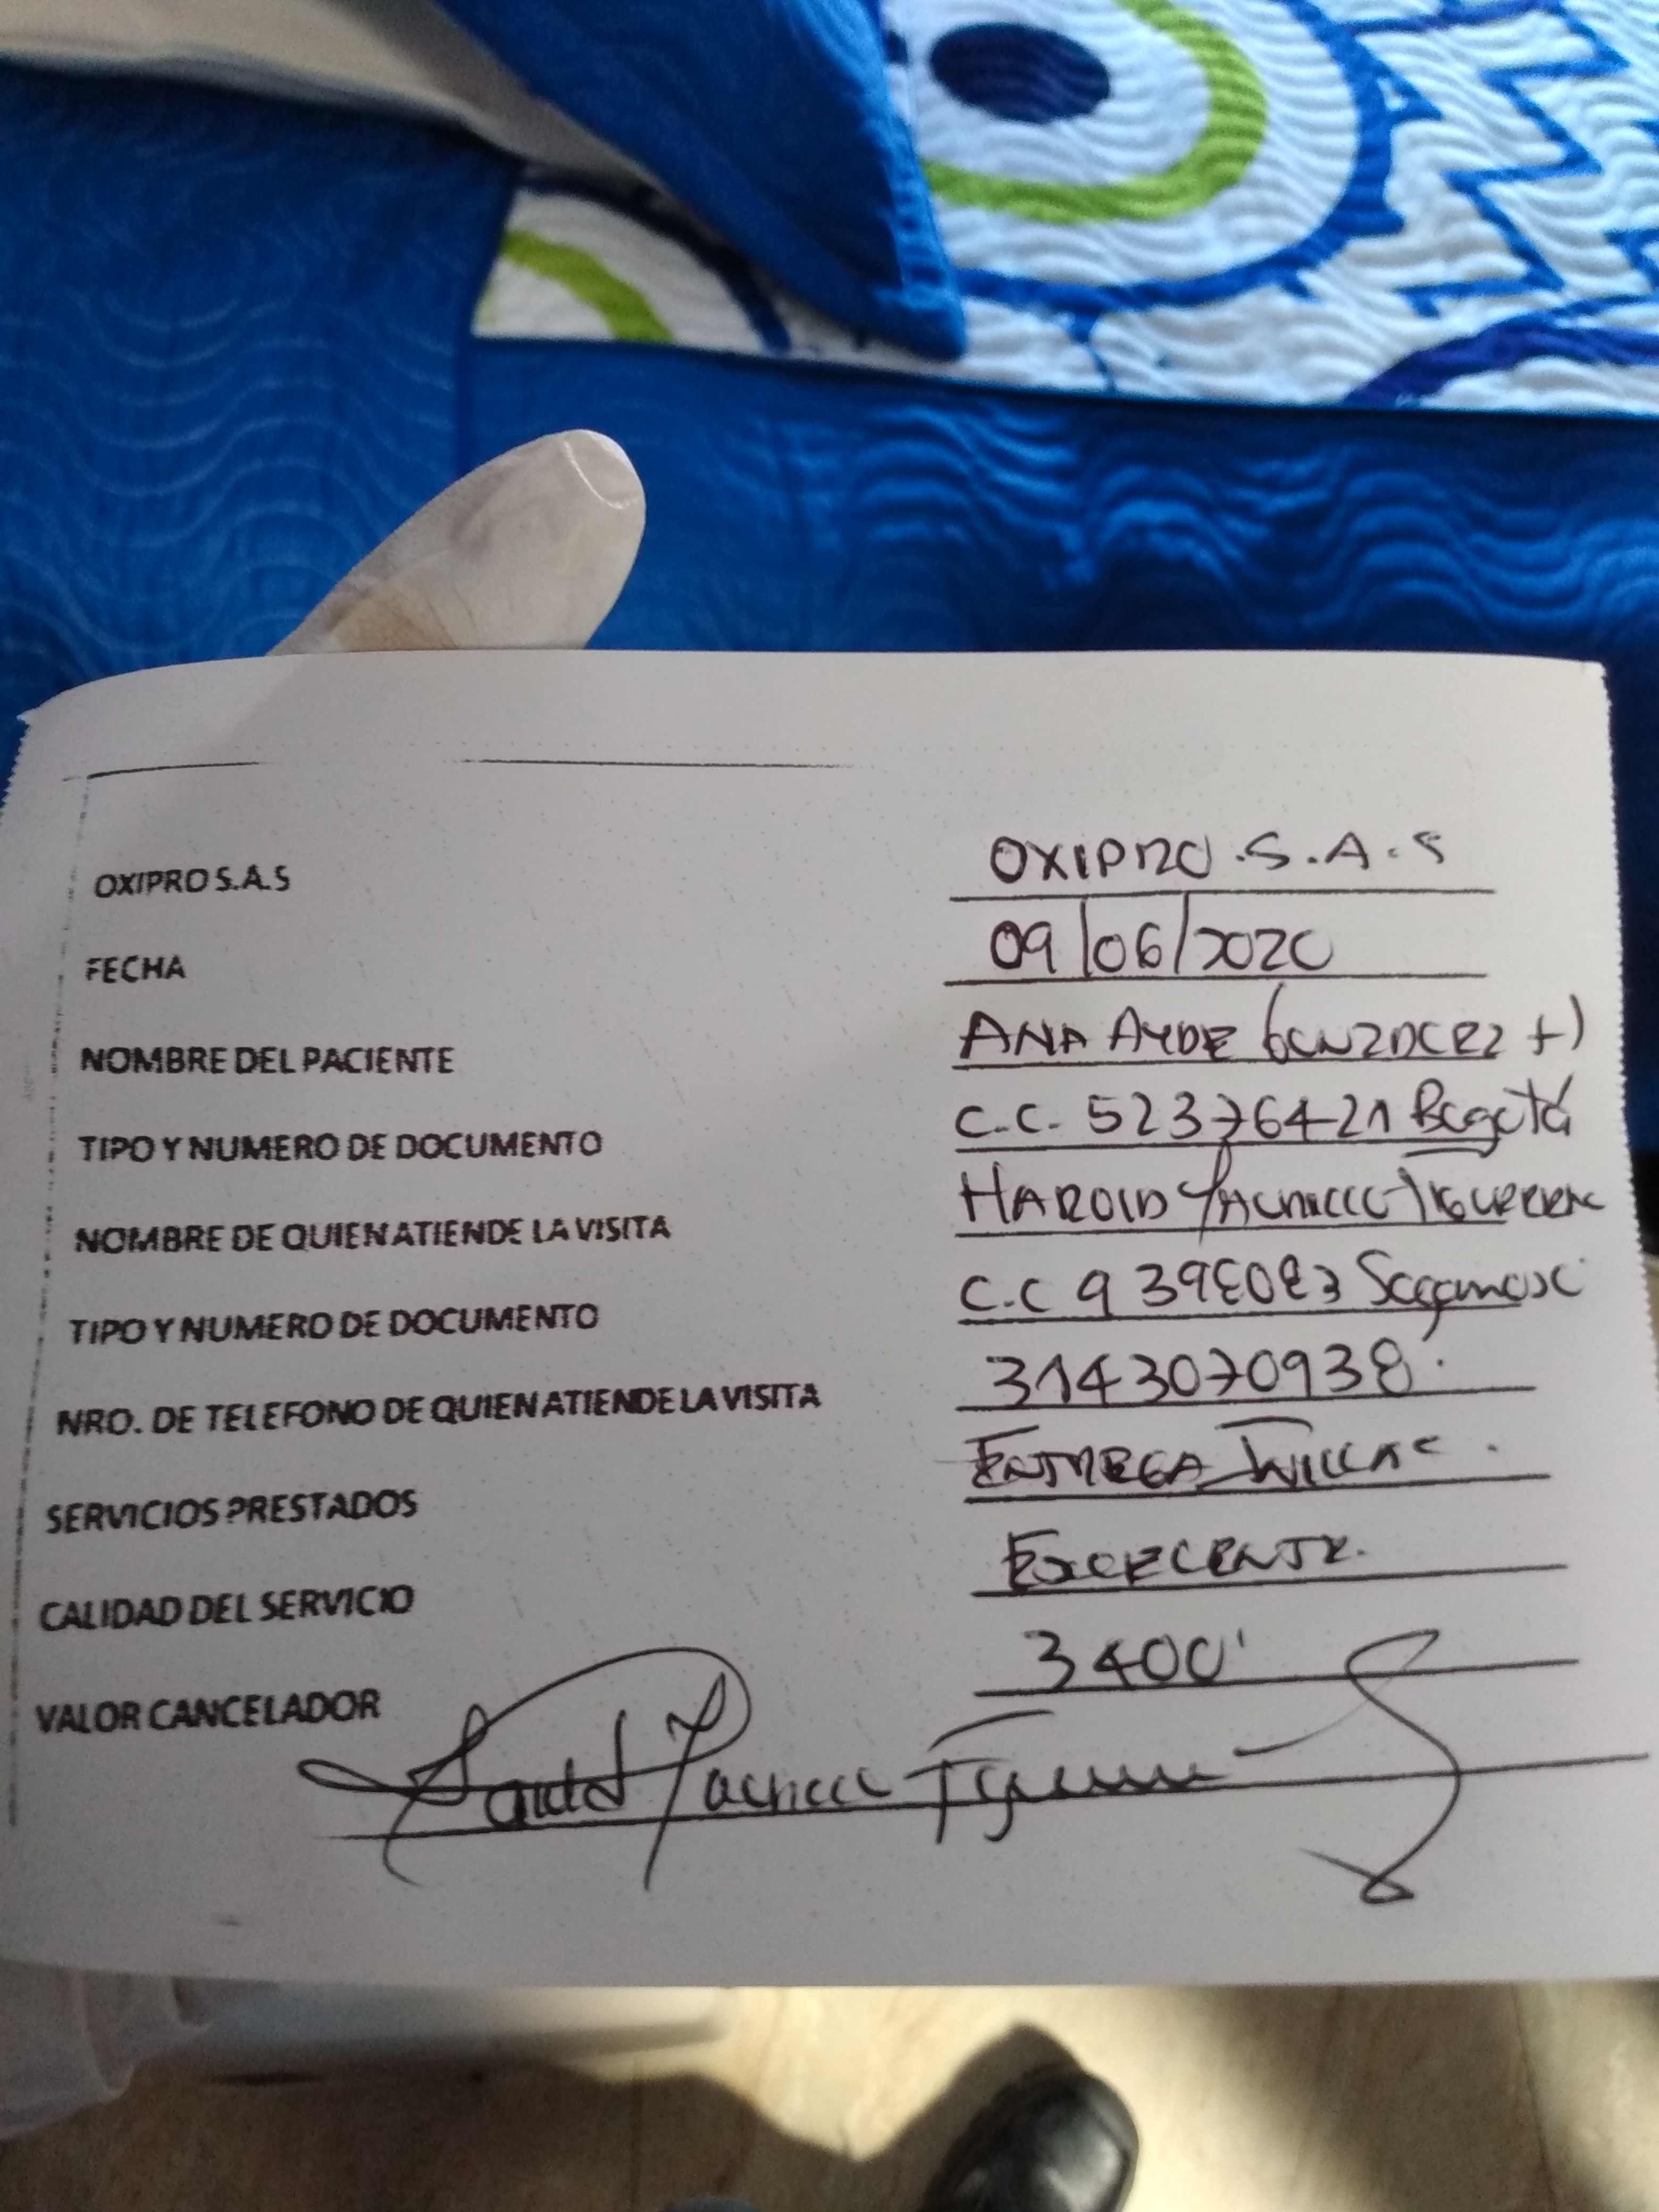 OXIPRO S.A.S OXIPRO.S.A.S
FECHA 09/06/2020
NOMBRE DEL PACIENTE ANA AYDE
TIPO Y NUMERO DE DOCUMENTO C.C. 52376421 Bogotá
NOMBRE DE QUIEN ATIENDE LA VISITA HAROLD
TIPO Y NUMERO DE DOCUMENTO C.C Sogamoso
NRO. DE TELEFONO DE QUIEN ATIENDE LA VISITA 3143070938
SERVICIOS PRESTADOS ENTREGA
CALIDAD DEL SERVICIO EXCELENTE.
VALOR CANCELADOR 3400